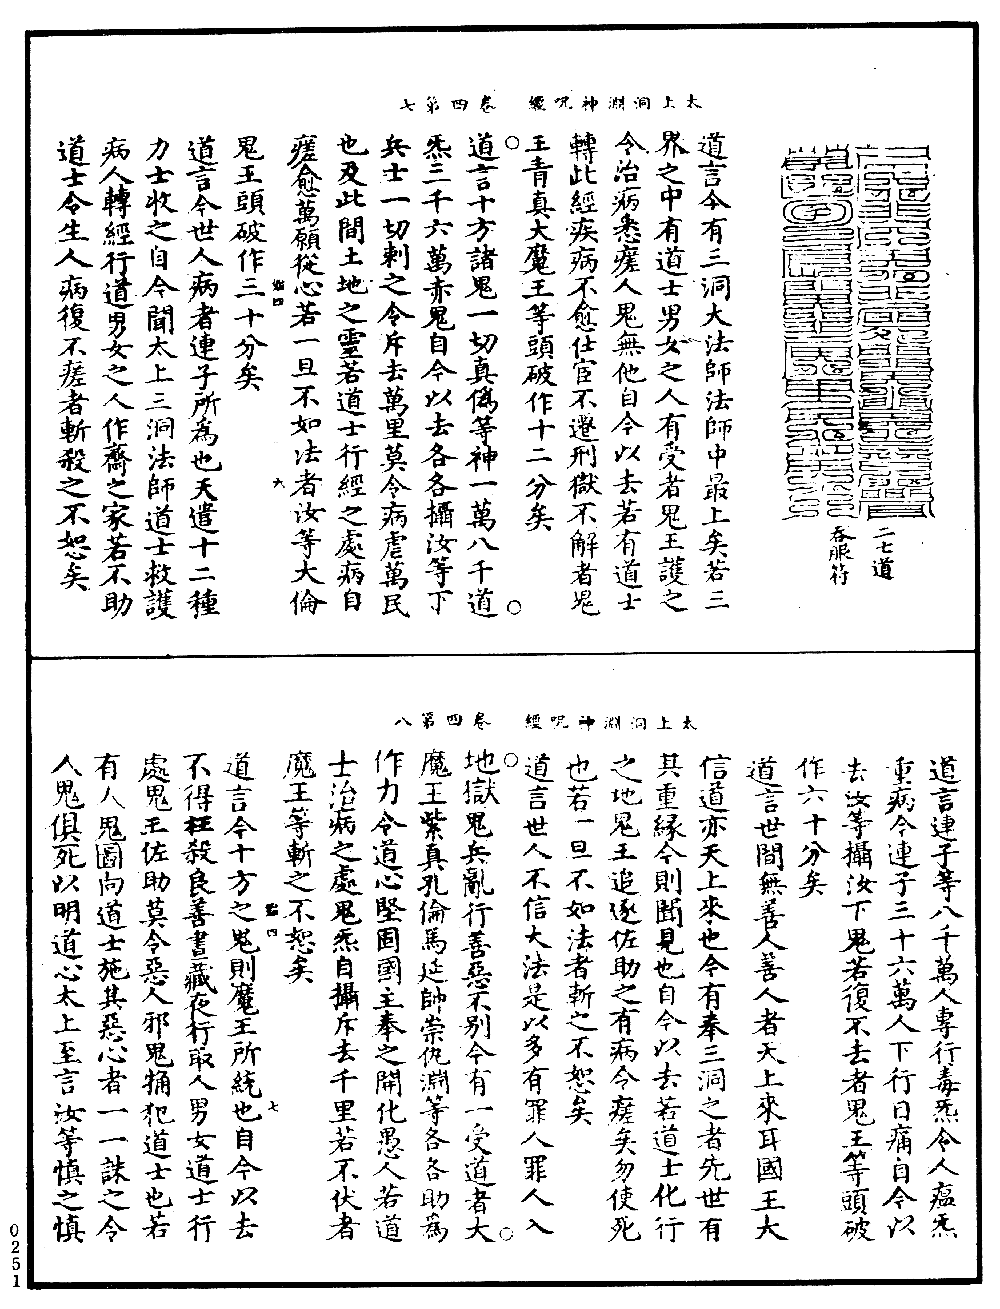 太上洞淵神呪經　卷四第七
二七道
吞服符
道言今有三洞大法師法師中最上矣若三
界之中有道士男女之人有受者鬼王護之
令治病悉瘥人鬼無他自今以去若有道士
轉此經疾病不愈仕宦不遷刑獄不解者鬼
王青真大魔王等頭破作十二分矣
道言十方諸鬼一切真偽等神一萬八千道
炁三千六萬赤鬼自今以去各各攝汝等下
兵士一切剌之令斥去萬里莫令病虐萬民
也及此間土地之靈若道士行經之處病自
瘥愈萬願從心若一旦不如法者汝等大倫
鬼王頭破作三十分矣
道言今世人病者連子所為也天遣十二種
力士收之自今聞太上三洞法師道士救護
病人轉經行道男女之人作齋之家若不助
道士令生人病復不瘥者斬殺之不恕矣
太上洞淵神呪經　卷四第八
道言連子等八千萬人專行毒炁令人瘟炁
重病今連子三十六萬人下行日痛自今以
去汝等攝汝下鬼若復不去者鬼王等頭破
作六十分矣
道言世間無善人善人者天上來耳國王大
信道亦天上來也今有奉三洞之者先世有
其重緣今則聞見也自今以去若道士化行
之地鬼王追逐佐助之有病令瘥矣勿使死
也若一旦不如法者斬之不恕矣
道言世人不信大法是以多有罪人罪人入
地獄鬼兵亂行善惡不別今有一受道者大
魔王紫真孔倫馬延帥崇仇淵等各各助為
作力令道心堅固國主奉之開化愚人若道
士治病之處鬼炁自攝斥去千里若不伏者
魔王等斬之不恕矣
道言今十方之鬼則魔王所統也自今以去
不得枉殺良善晝藏夜行取人男女道士行
處鬼王佐助莫令惡人邪鬼捕犯道士也若
有人鬼圖向道士施其惡心者一一誅之令
人鬼俱死以明道心太上至言汝等慎之慎
0251